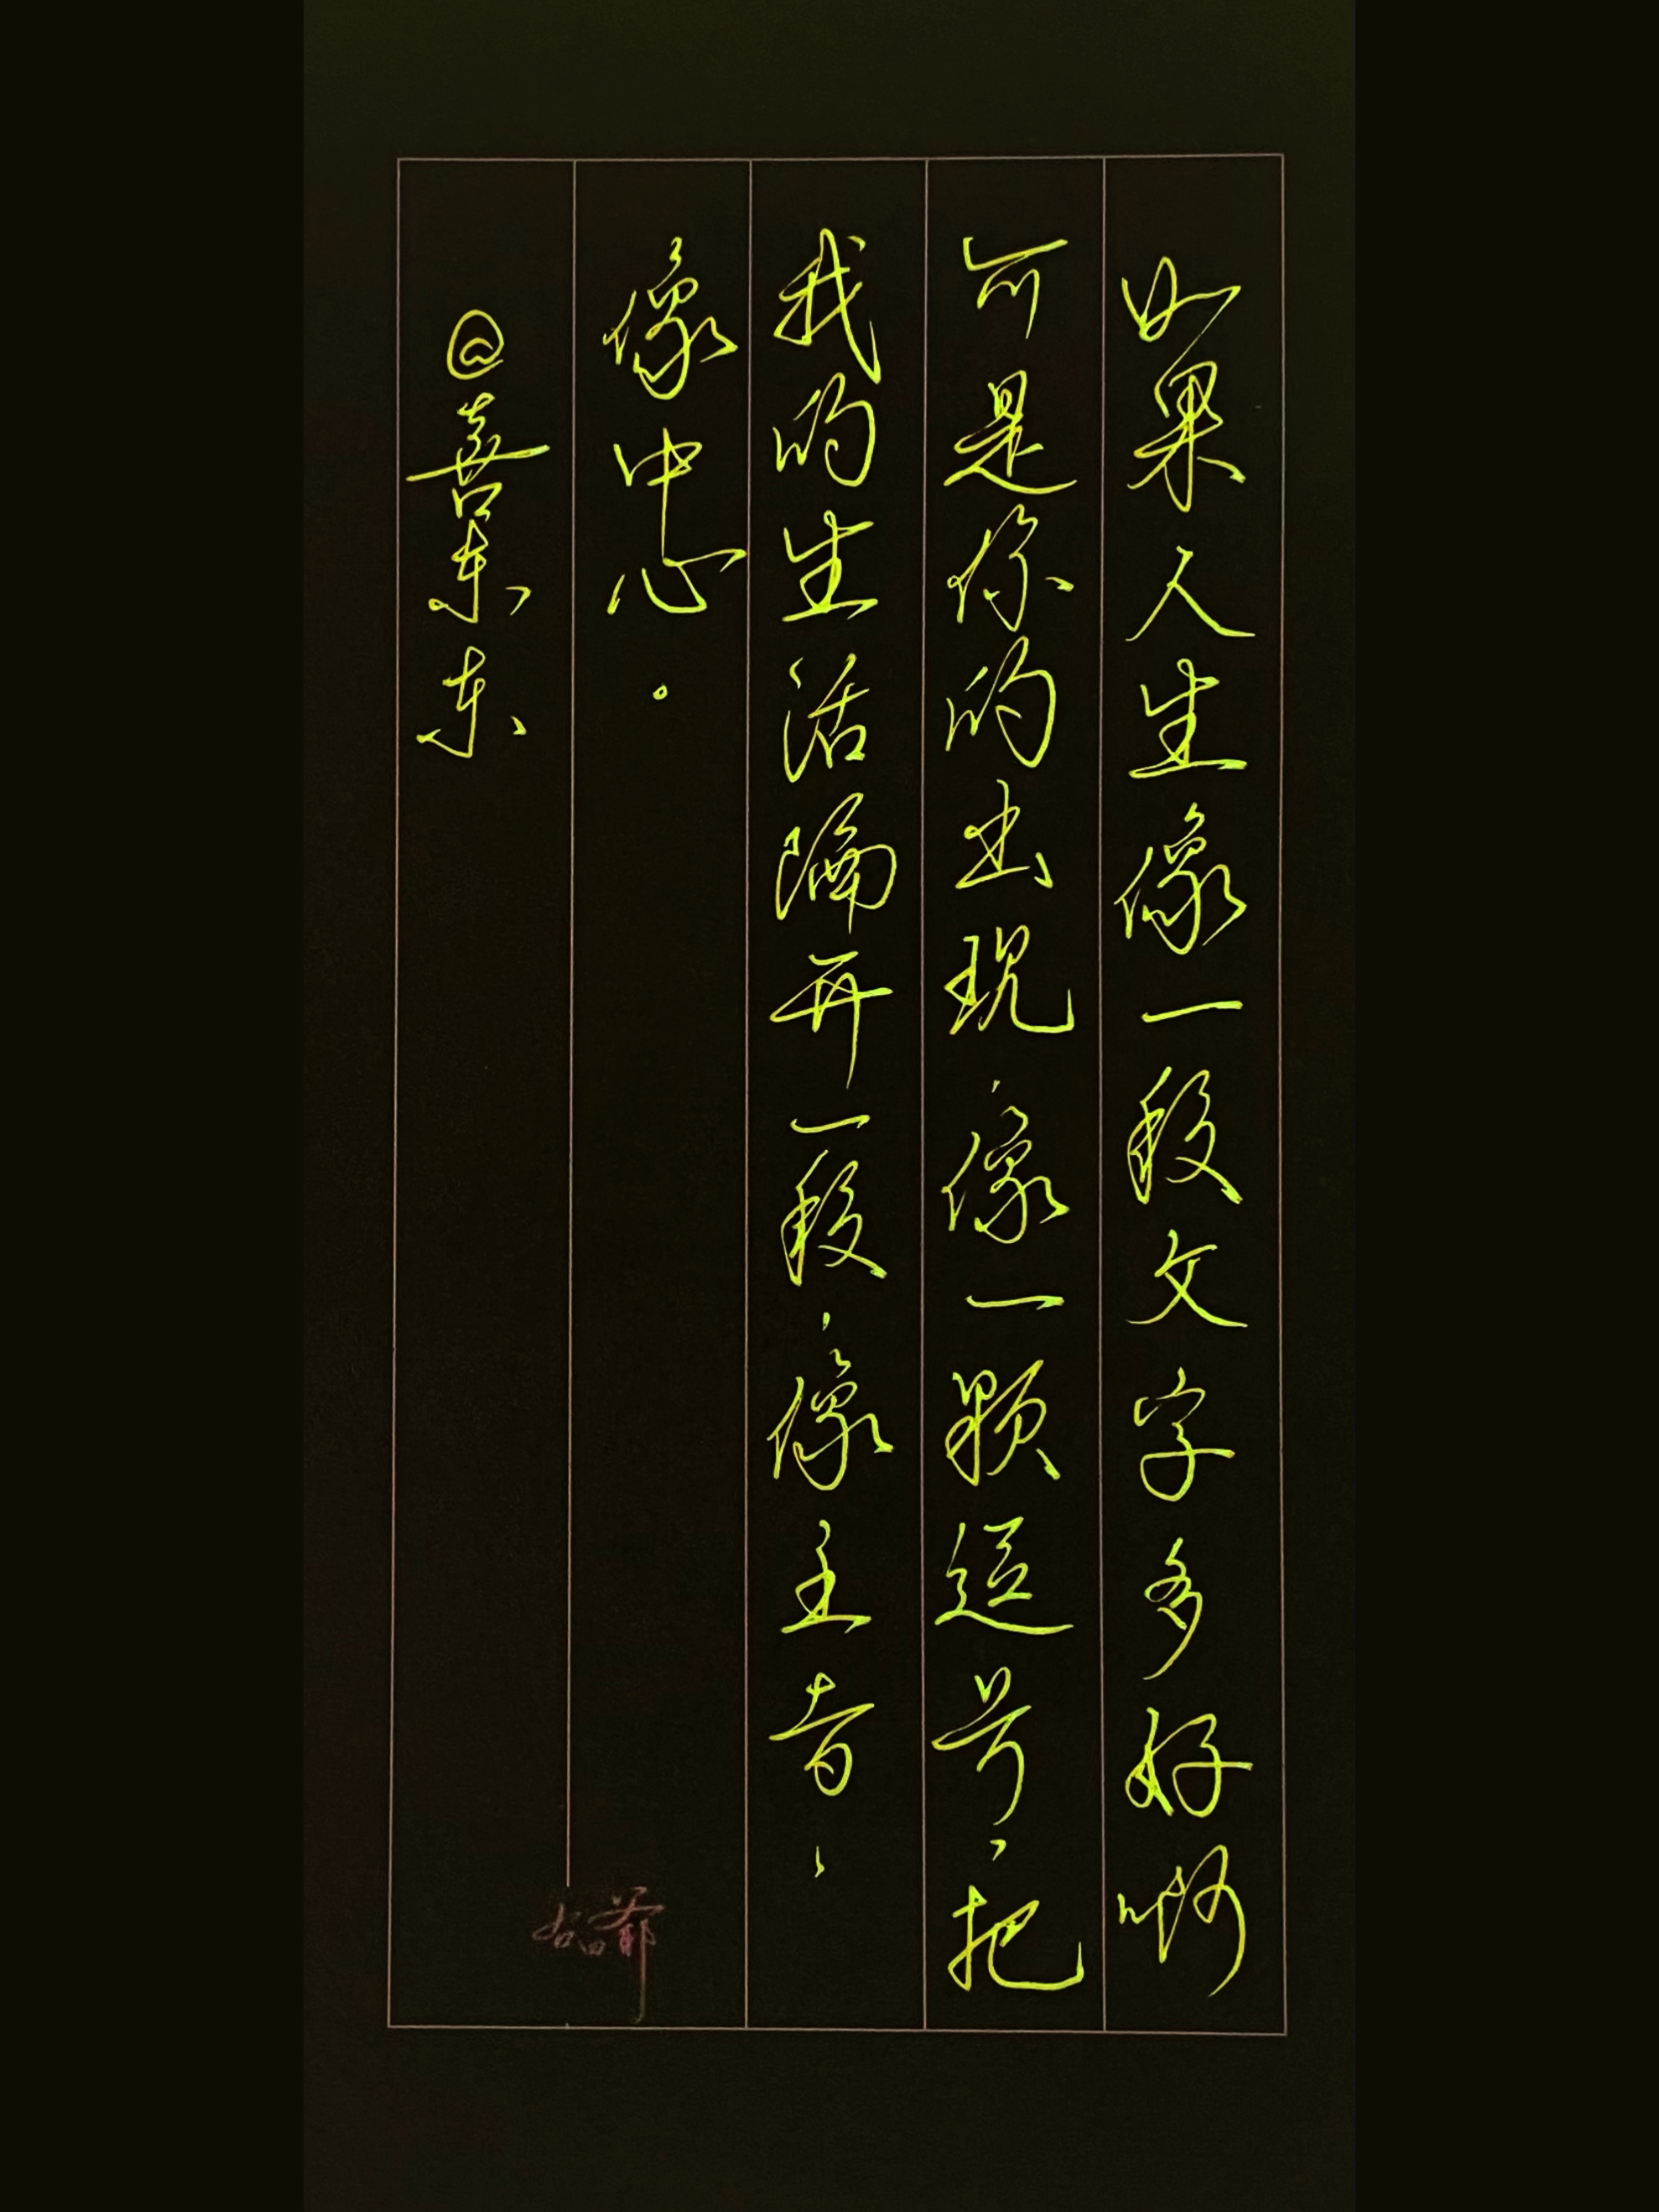 如果人生像一段文字多好啊
可是你的出现，像一颗逗号，把
我的生活隔开一段，像主旨，
像中心。
@喜东东